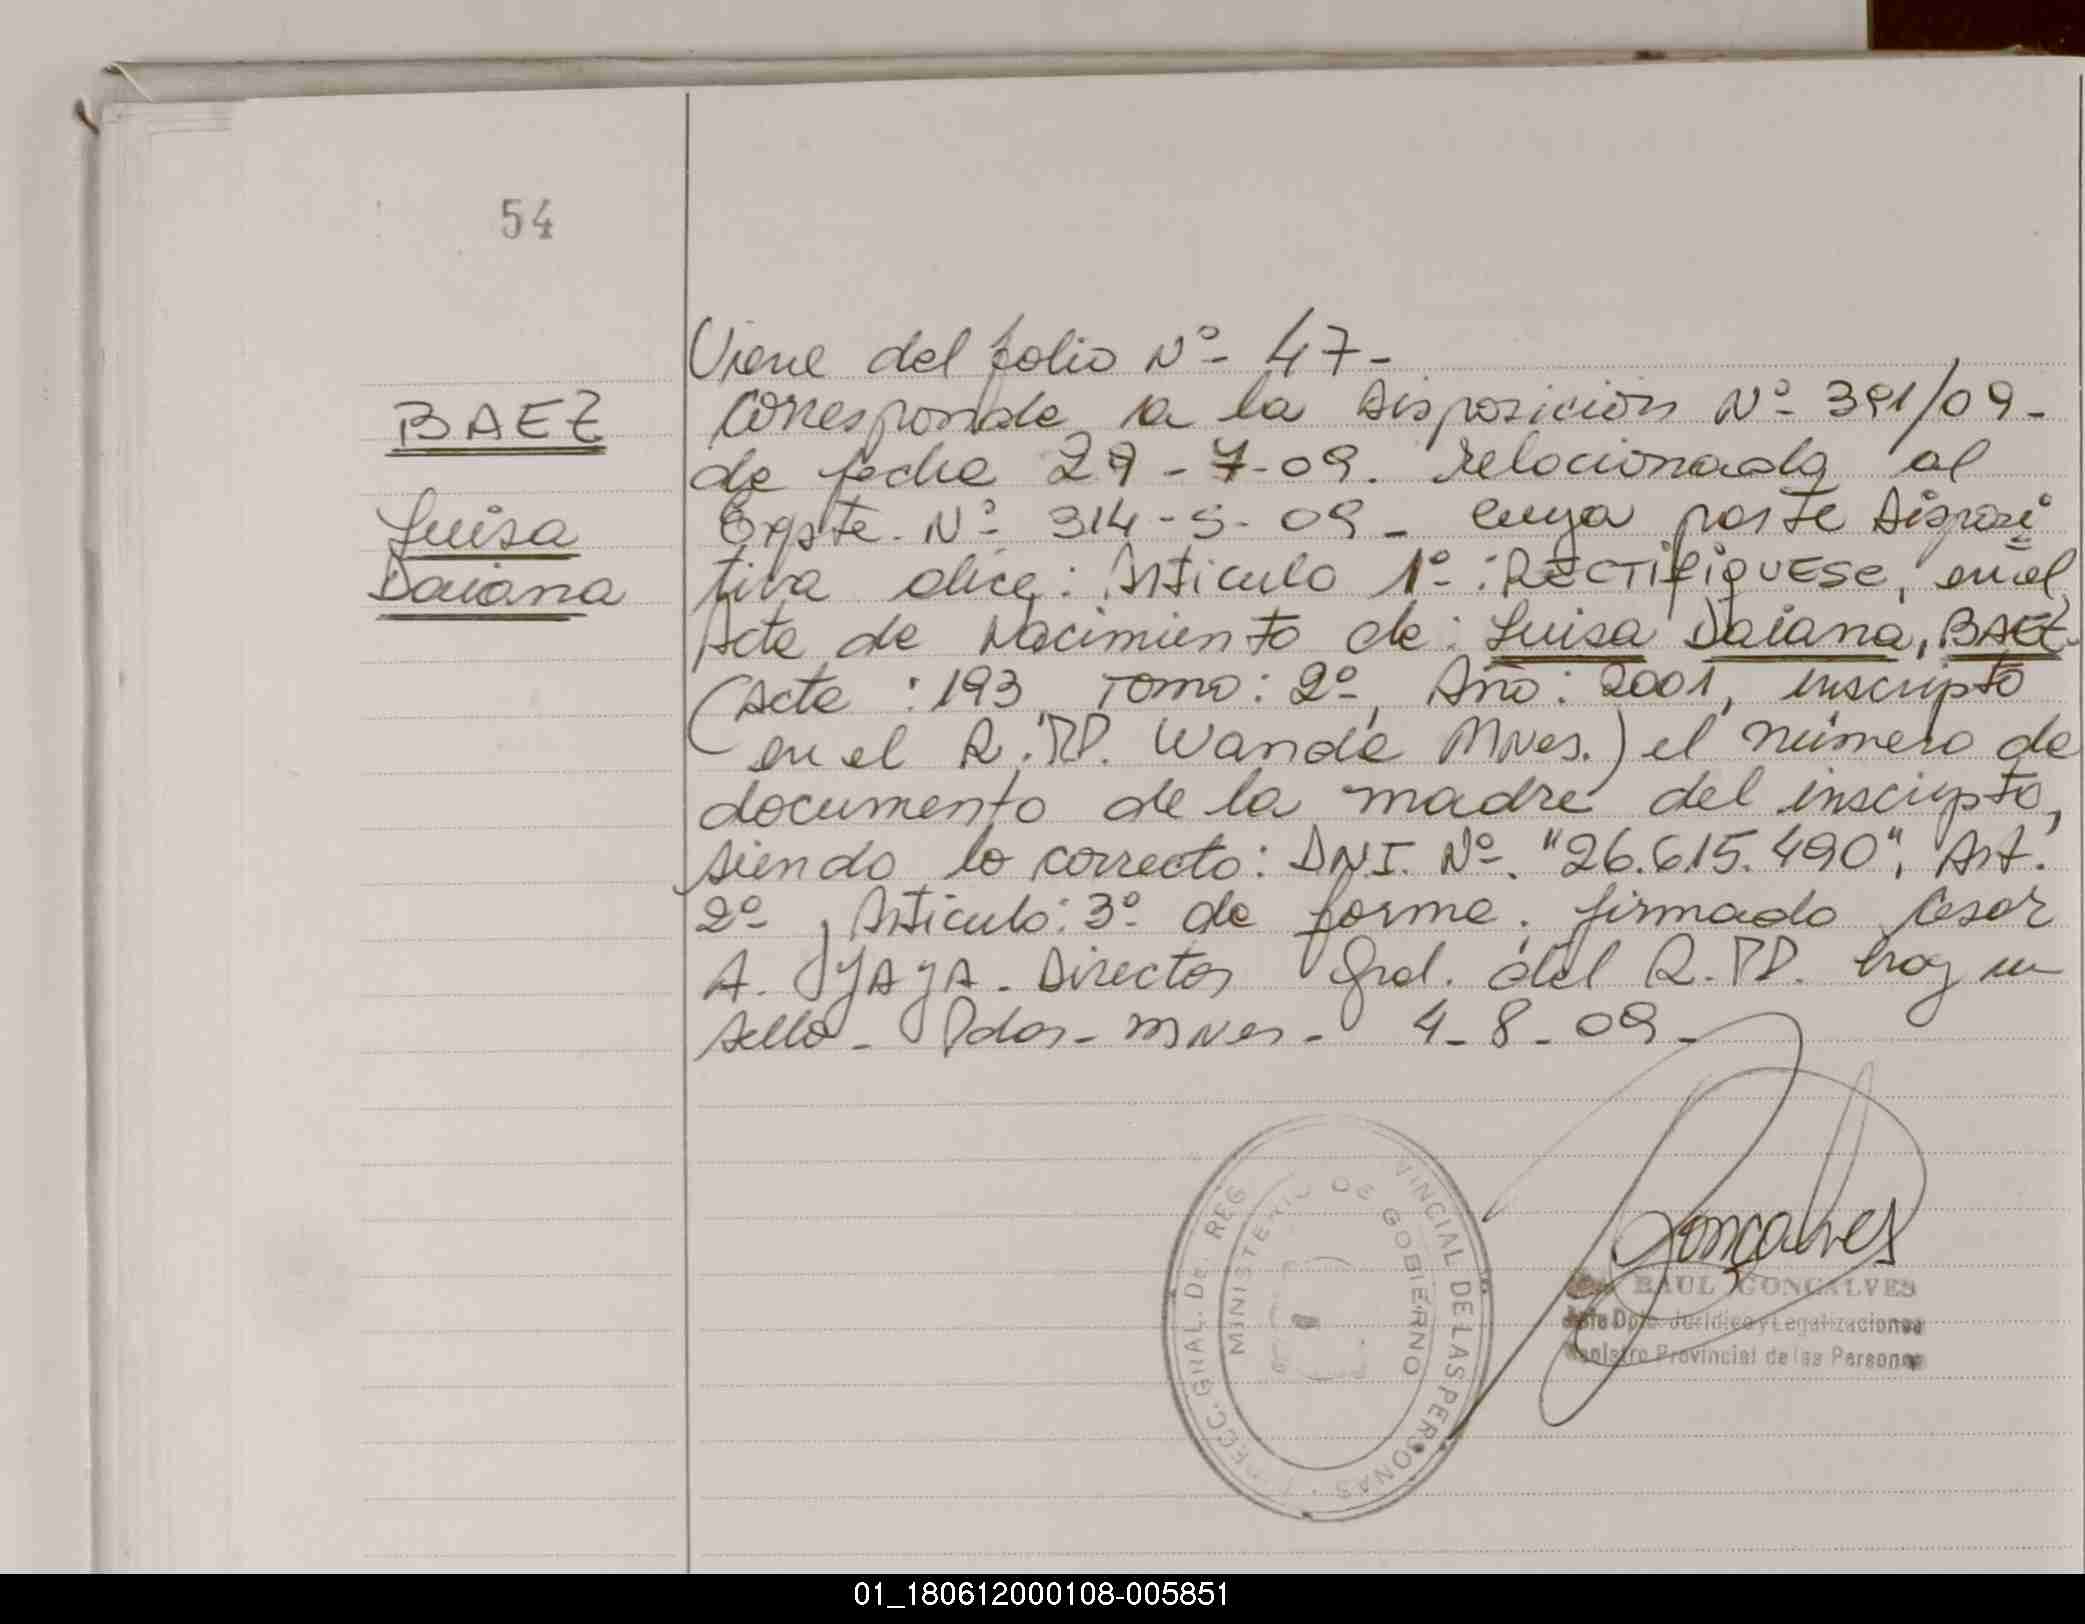 54
BAEZ
Luisa
Daiana
Viene del folio Nº- 47-
Corresponde a la Disposición Nº- 391/09-
de fecha 29-7-09. relacionada al
Expte. Nº- 314-S-09- cuya parte Disposi
tiva dice: Articulo 1º-: RECTIFIQUESE, en el
Acta de Nacimiento de: Luisa Daiana, BAEZ-
(Acta: 193, Tomo: 2º-, Año: 2001, inscripto
en el R.PP. Wanda Mnes.) el número de
documento de la madre del inscripto,
siendo lo correcto: DNI. Nº-. "26.615.490", Art.
2º-, Articulo: 3º de forma, firmado Cesar
A. Directos Gral. del R.PP. hay un
sello- Pdas-Mnes- 4-8-09-
Goncalves
RAUL GONCALVES
Jefe Dpto. Jurídico y Legalizaciones
Registro Provincial de las Personas
DIRECC. GRAL. DE. REG VINCIAL DE LAS PERSONAS
MINISTERIO DE GOBIERNO
01_180612000108-005851